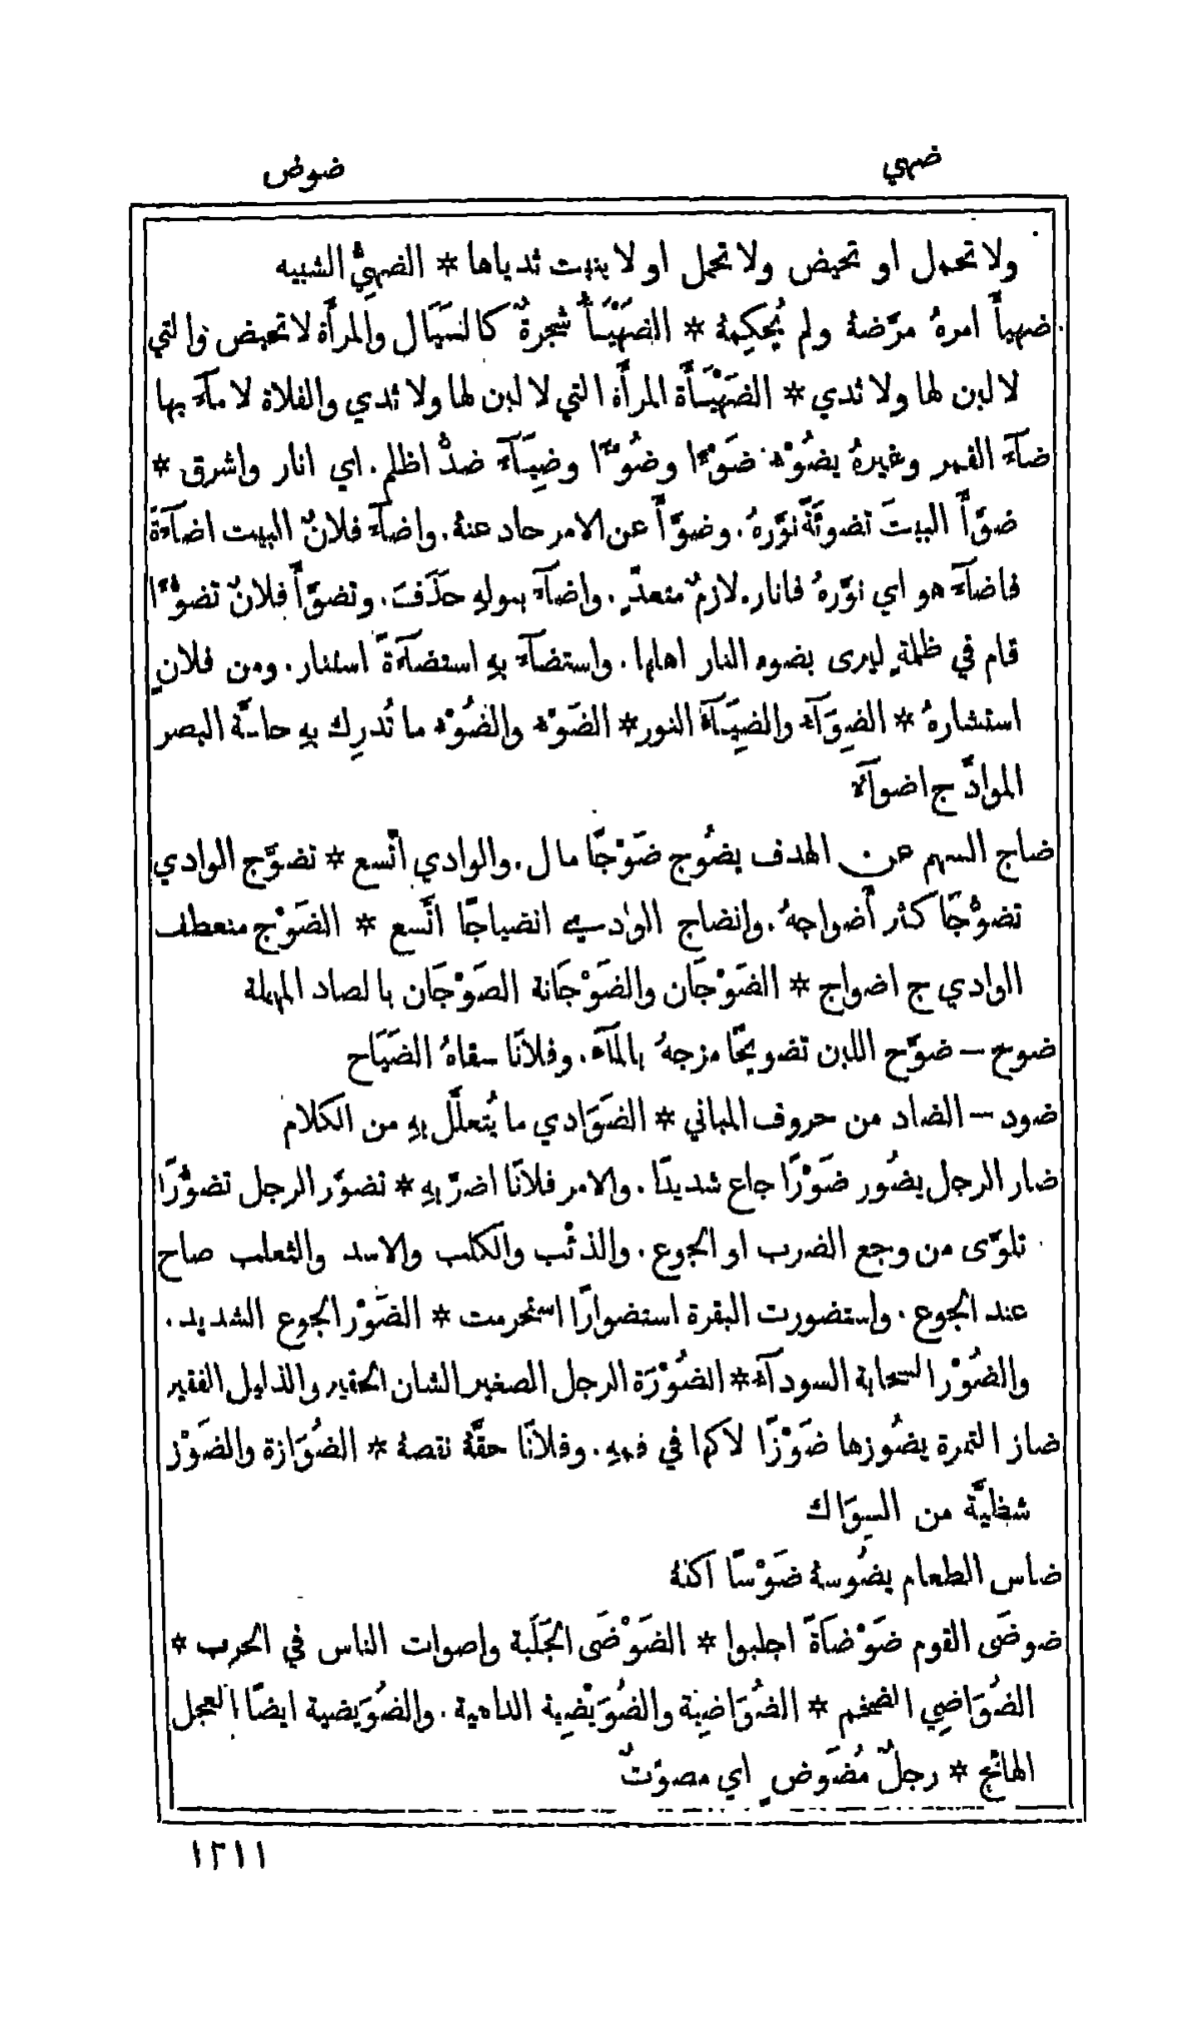 ضهي
ضوض
ولا تحمل او تحيض ولا تحمل او لا ينبت ثدياها * الضهيُّ الشبيه
ضهيأَ امرهُ مرَّضهُ ولم يُحكِمهُ * الضَهْيَأُ شجرةٌ كالسَيَال والمرأَة لا تحيض والتي
لا لبن لها ولا ثدي * الضَهْيَأَة المرأَة التي لا لبن لها ولا ثدي والفلاة لا مآء بها
ضآء القمر وغيرهُ يضُوْء ضَوْءًا وضُوْءًا وضِيَآء ضدُّ اظلم. اي انار واشرق *
ضوَّأَ البيتَ تضوئَةً نوَّرهُ. وضوَّأَ عن الامر حاد عنهُ. واضآء فلانٌ البيت اضآءَةً
فاضآء هو اي نوَّرهُ فانار. لازمٌ متعدٍّ. واضآء ببولهِ حَذَفَ. وتضوَّأَ فلانٌ تضوُّءًا
قام في ظلمةٍ ليرى بضوء النار اهلها. واستضآء بهِ استضآءَةً استنار. ومن فلانٍ
استشارهُ * الضِوَآء والضِيَآءُ النور * الضَوْء والضُوْء ما تُدرِك بهِ حاسَّة البصر
الموادَّ ج اضوآء
ضاج السهم عن الهدف يضُوج ضَوْجًا مال. والوادي اتَّسع * تضوَّج الوادي
تضوُّجًا كثر أَضواجهُ. وانضاج الوادي انضياجًا اتَّسع * الضَوْج منعطف
الوادي ج اضواج * الضَوْجَان والضَوْجَانة الصَوْجَان بالصاد المهملة
ضوح – ضوَّح اللبن تضويحًا مزجهُ بالمآء. وفلانًا سقاهُ الضَيَاح
ضود – الضاد من حروف المباني * الضَوَادي ما يُتعلَّل بهِ من الكلام
ضار الرجل يضُور ضَوْرًا جاع شديدًا. والامر فلانًا اضرَّ بهِ * تضوَّر الرجل تضوُّرًا
تلوَّى من وجع الضرب او الجوع. والذئْب والكلب والاسد والثعلب صاح
عند الجوع. واستضورت البقرة استضوارًا استحرمت * الضَوْر الجوع الشديد.
والضُوْر السحابة السودآء * الضُوْرَة الرجل الصغير الشان الحقير والذليل الفقير
ضاز التمرة يضُوزها ضَوْزًا لاكها في فمهِ. وفلانًا حقَّهُ نقصهُ * الضُوَازة والضَوْز
شظيَّة من السِوَاك
ضاس الطعام يضُوسهُ ضَوْسًا اكلهُ
ضوضَى القوم ضَوْضَاةً اجلبوا * الضَوْضَى الجَلَبة واصوات الناس في الحرب *
الضُوَاضِي الضخم * الضُوَاضِيَة والضُوَيْضِية الداهية. والضُوَيضية ايضًا الفحل
الهائج * رجلٌ مُضَوضٍ اي مصوّتٌ
١٢١١